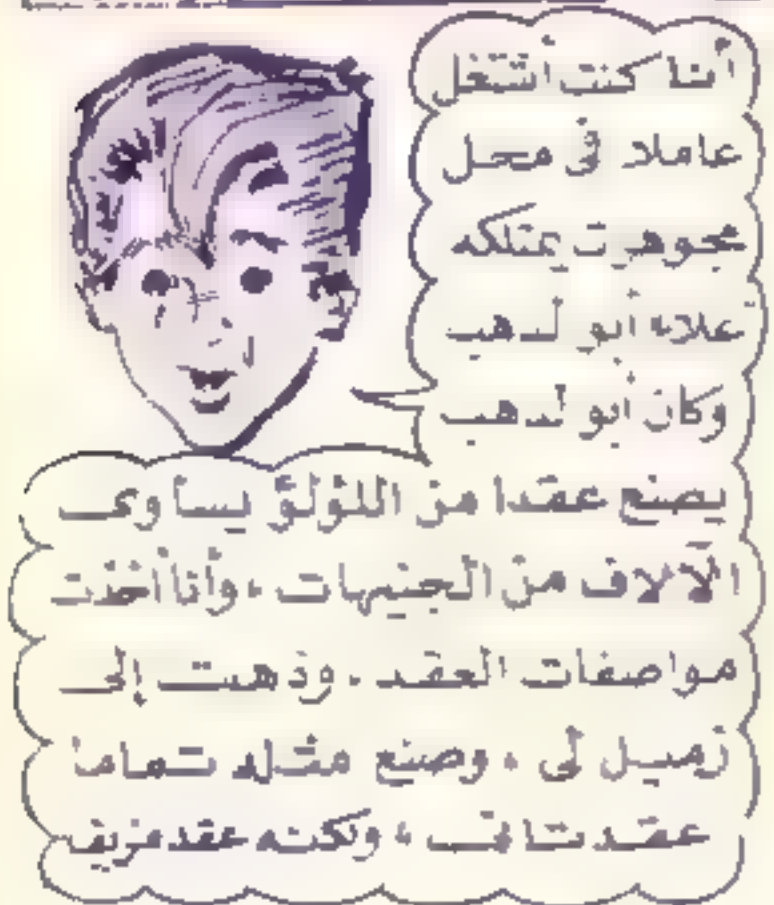 أنا كنت أشتغل
عاملا فى محل
مجوهرات يمتلكه
علاء أبو لدهب
وكان أبو لدهب
يصنع عقدا من اللؤلؤ يساوى
الآلاف من الجنيهات ، وأنا أخذت
مواصفات العقد . وذهبت إلى
زميل لى ، وصنع مثله تماما
عقد تانى ، ولكنه عقد مزيف